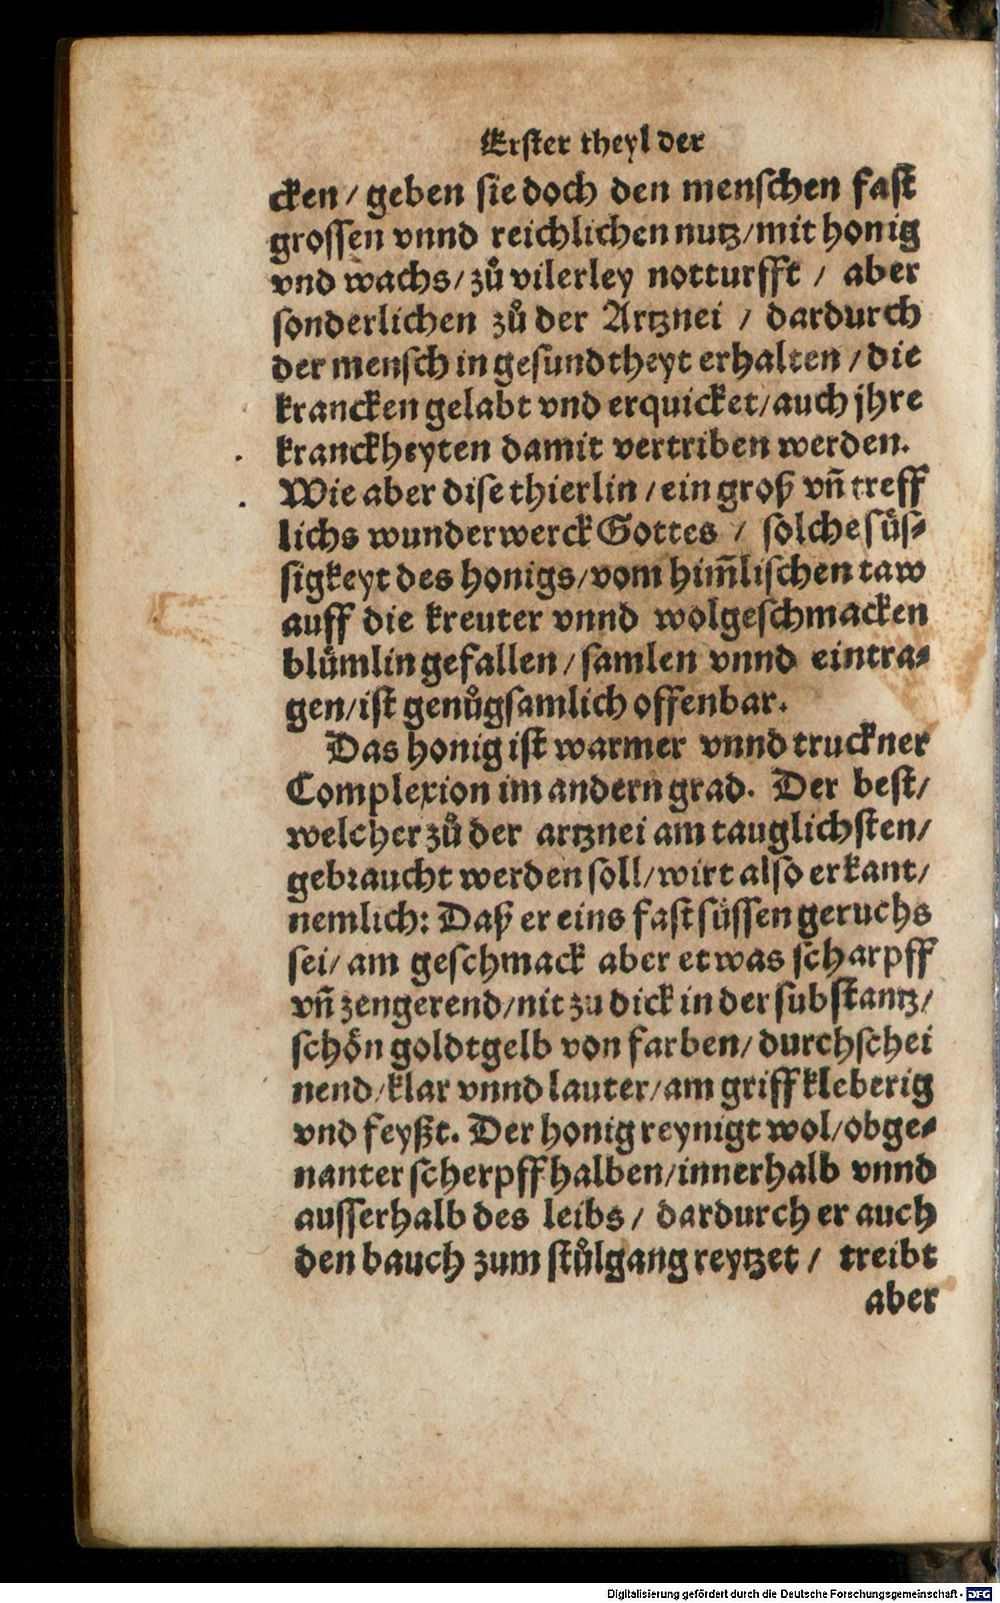 Erster theyl der
cken / geben sie doch den menschen fast
grossen vnnd reichlichen nutz/mit honig
vnd wachs/zů vilerley notturfft / aber
sonderlichen zů der Artznei / dardurch
der mensch in gesundtheyt erhalten/die
krancken gelabt vnd erquicket/auch jhre
kranckheyten damit vertriben werden.
Wie aber dise thierlin/ein groß vñ treff
lichs wunderwerck Gottes / solche süs⸗
sigkeyt des honigs/vom him̄lischen taw
auff die kreuter vnnd wolgeschmacken
blůmlin gefallen/samlen vnnd eintra⸗
gen/ist genůgsamlich offenbar.
Das honig ist warmer vnnd truckner
Complexion im andern grad. Der best/
welcher zů der artznei am tauglichsten/
gebraucht werden soll/wirt also erkant/
nemlich: Daß er eins fast süssen geruchs
sei/am geschmack aber etwas scharpff
vñ zengerend/nit zu dick in der substantz/
schön goldtgelb von farben/durchschei
nend/klar vnnd lauter/am griff kleberig
vnd feyßt. Der honig reynigt wol/obge⸗
nanter scherpff halben/innerhalb vnnd
ausserhalb des leibs/ dardurch er auch
den bauch zum stůlgang reytzet / treibt
aber
Digitalisierung gefördert durch die Deutsche Forschungsgemeinschaft - DFG